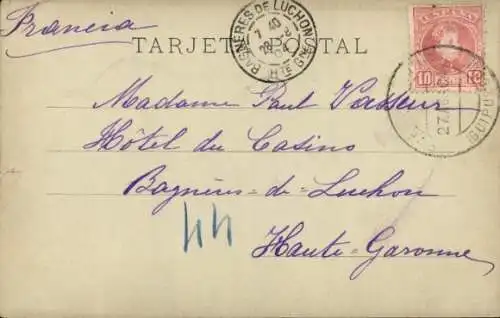 Francia
TARJETA POSTAL
BAGNERES-DE-LUCHON
7 40
28
HTE
ESPAÑA
10 10
27
GUIPUZ
Madame Paul Vasseur
Hôtel du Casino
Bagnères-de-Luchon
44
Haute-Garonne